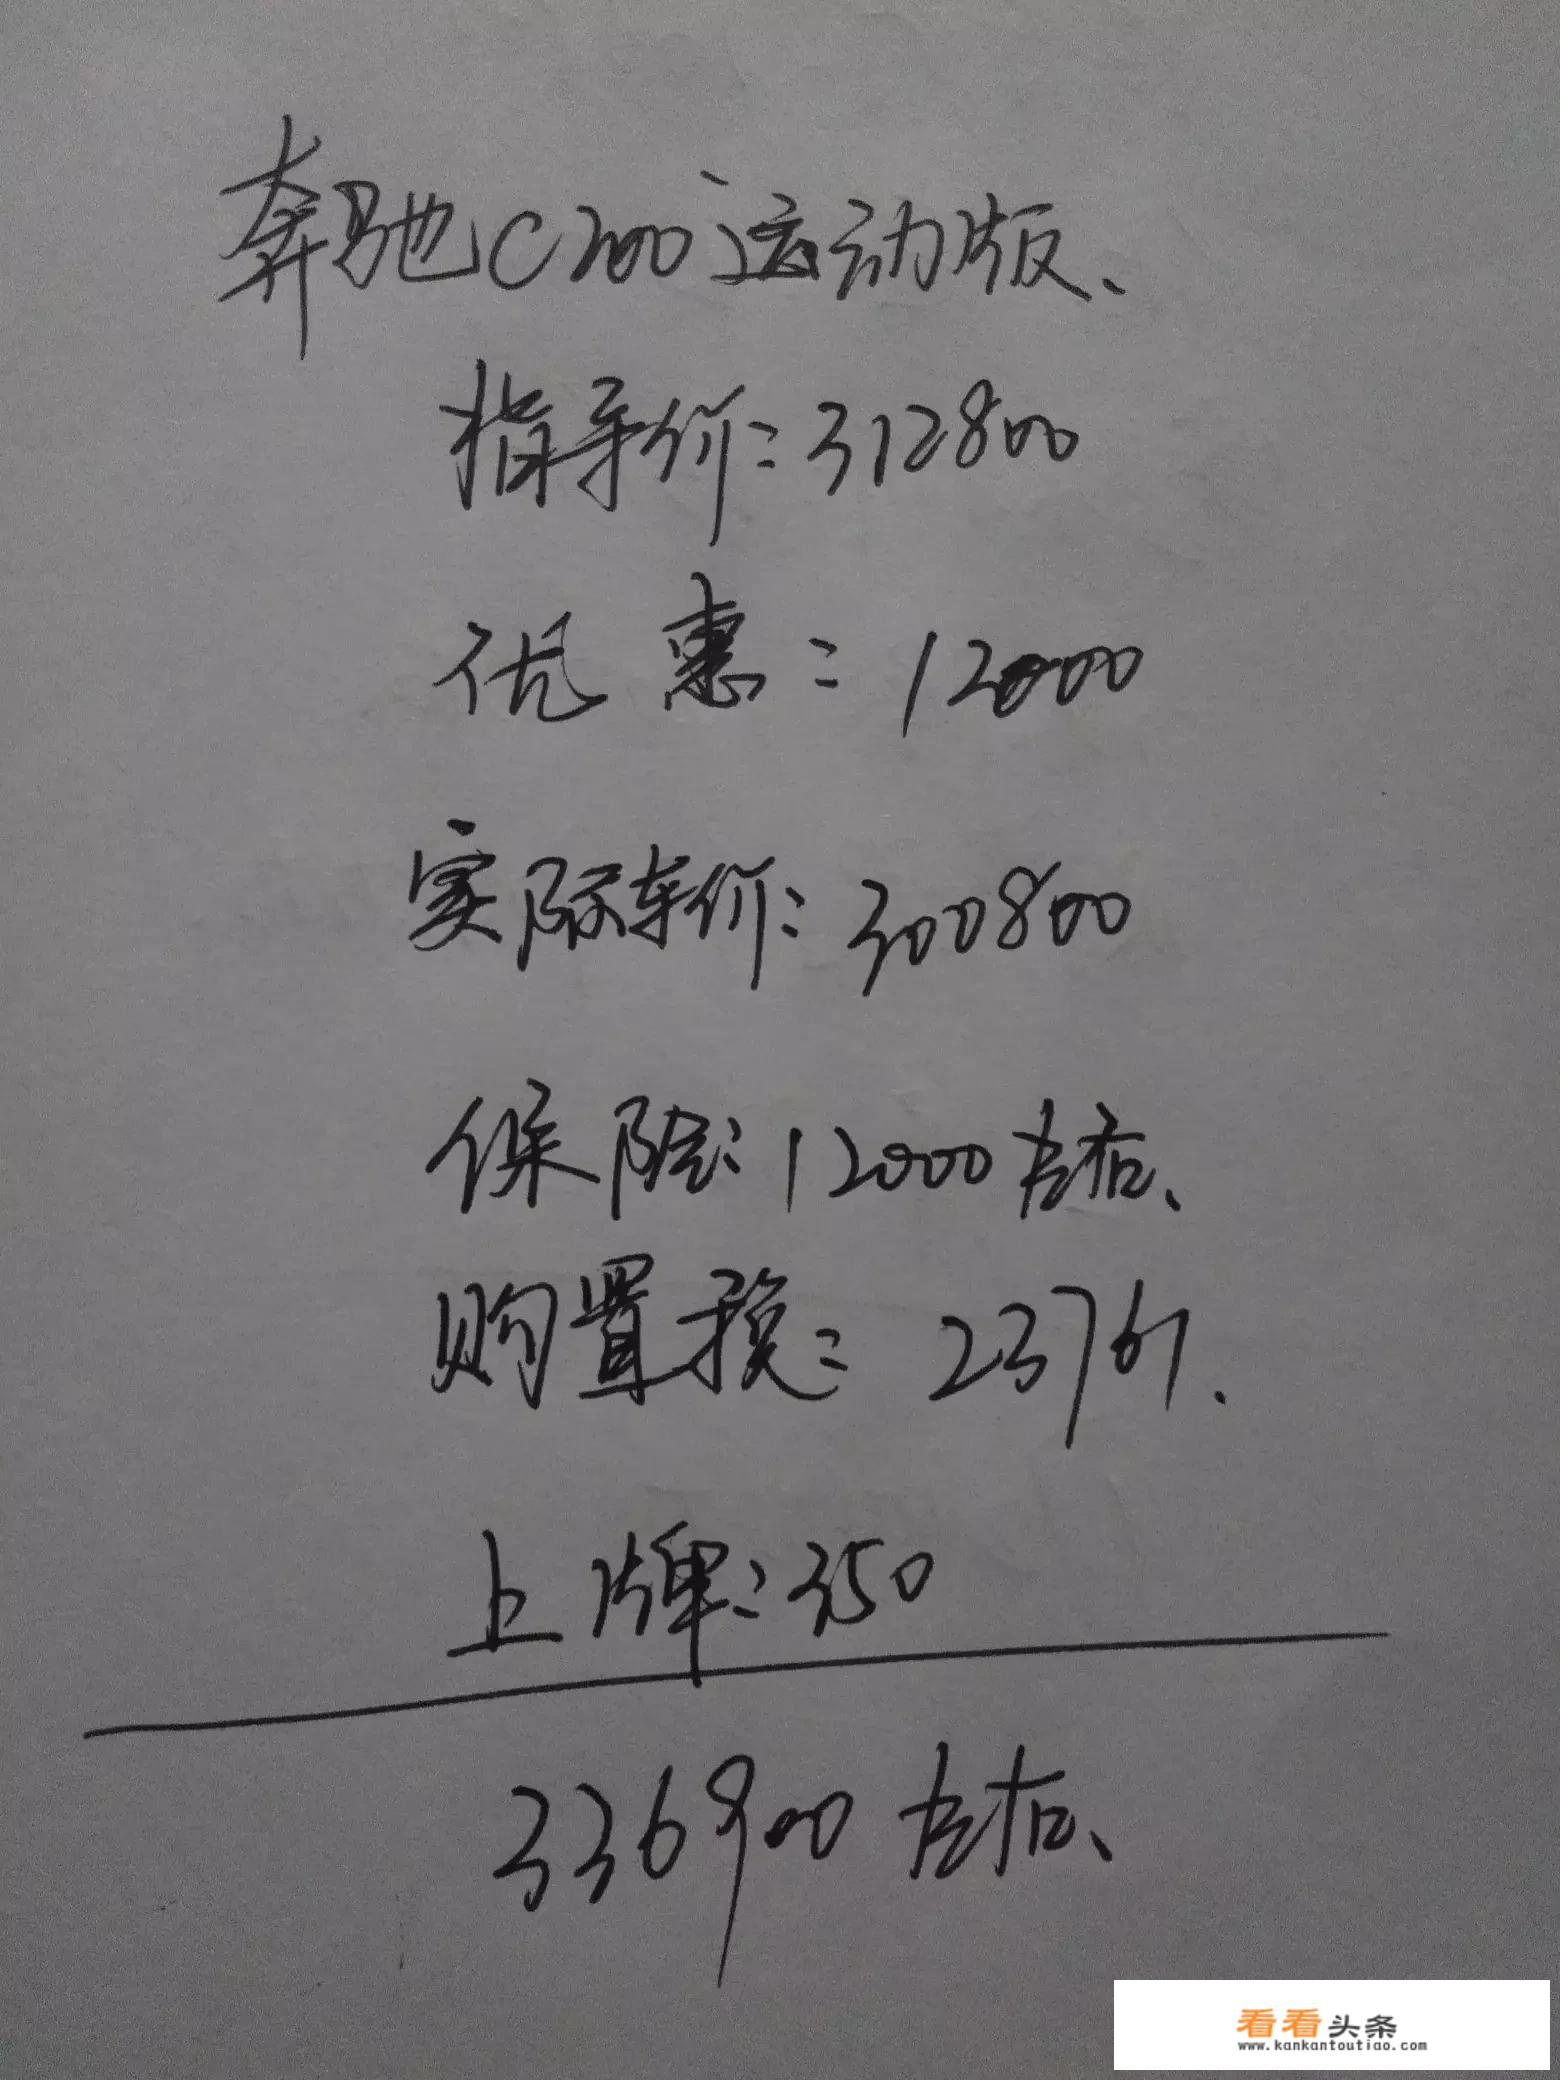 奔驰C200运动版、
指导价：312800
优惠：12000
实际车价：300800
保险：12000左右、
购置税：23761.
上牌：350
336900左右、
看看头条
www.kankantoutiao.com